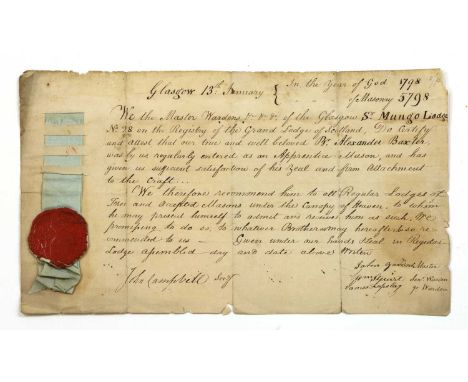 Glasgow 13th January { In the Year of God 1798
of Masonry 5798
We the Master Wardens &c &c of the Glasgow St Mungo Lodge
No 28 on the Registry of the Grand Lodge of Scotland, Do Certify
and attest that our true and well beloved Br. Alexander Baxter
was by us regularly entered as an Apprentice Mason, and has
given us sufficient satisfaction of his Zeal and firm Attachment
to the Craft
We therefore recommend him to all Regular Lodges of
Free and Accepted Masons under the Canopy of Heaven, to whom
he may present himself to admit and receive him as such, We
promising to do so, to whatever Brothers may hereafter be so re-
commended to us — Given under our hands & Seal in Regular
Lodge assembled day and date above Written
John Master
John Campbell Secy Senr Warden
James Jr Warden